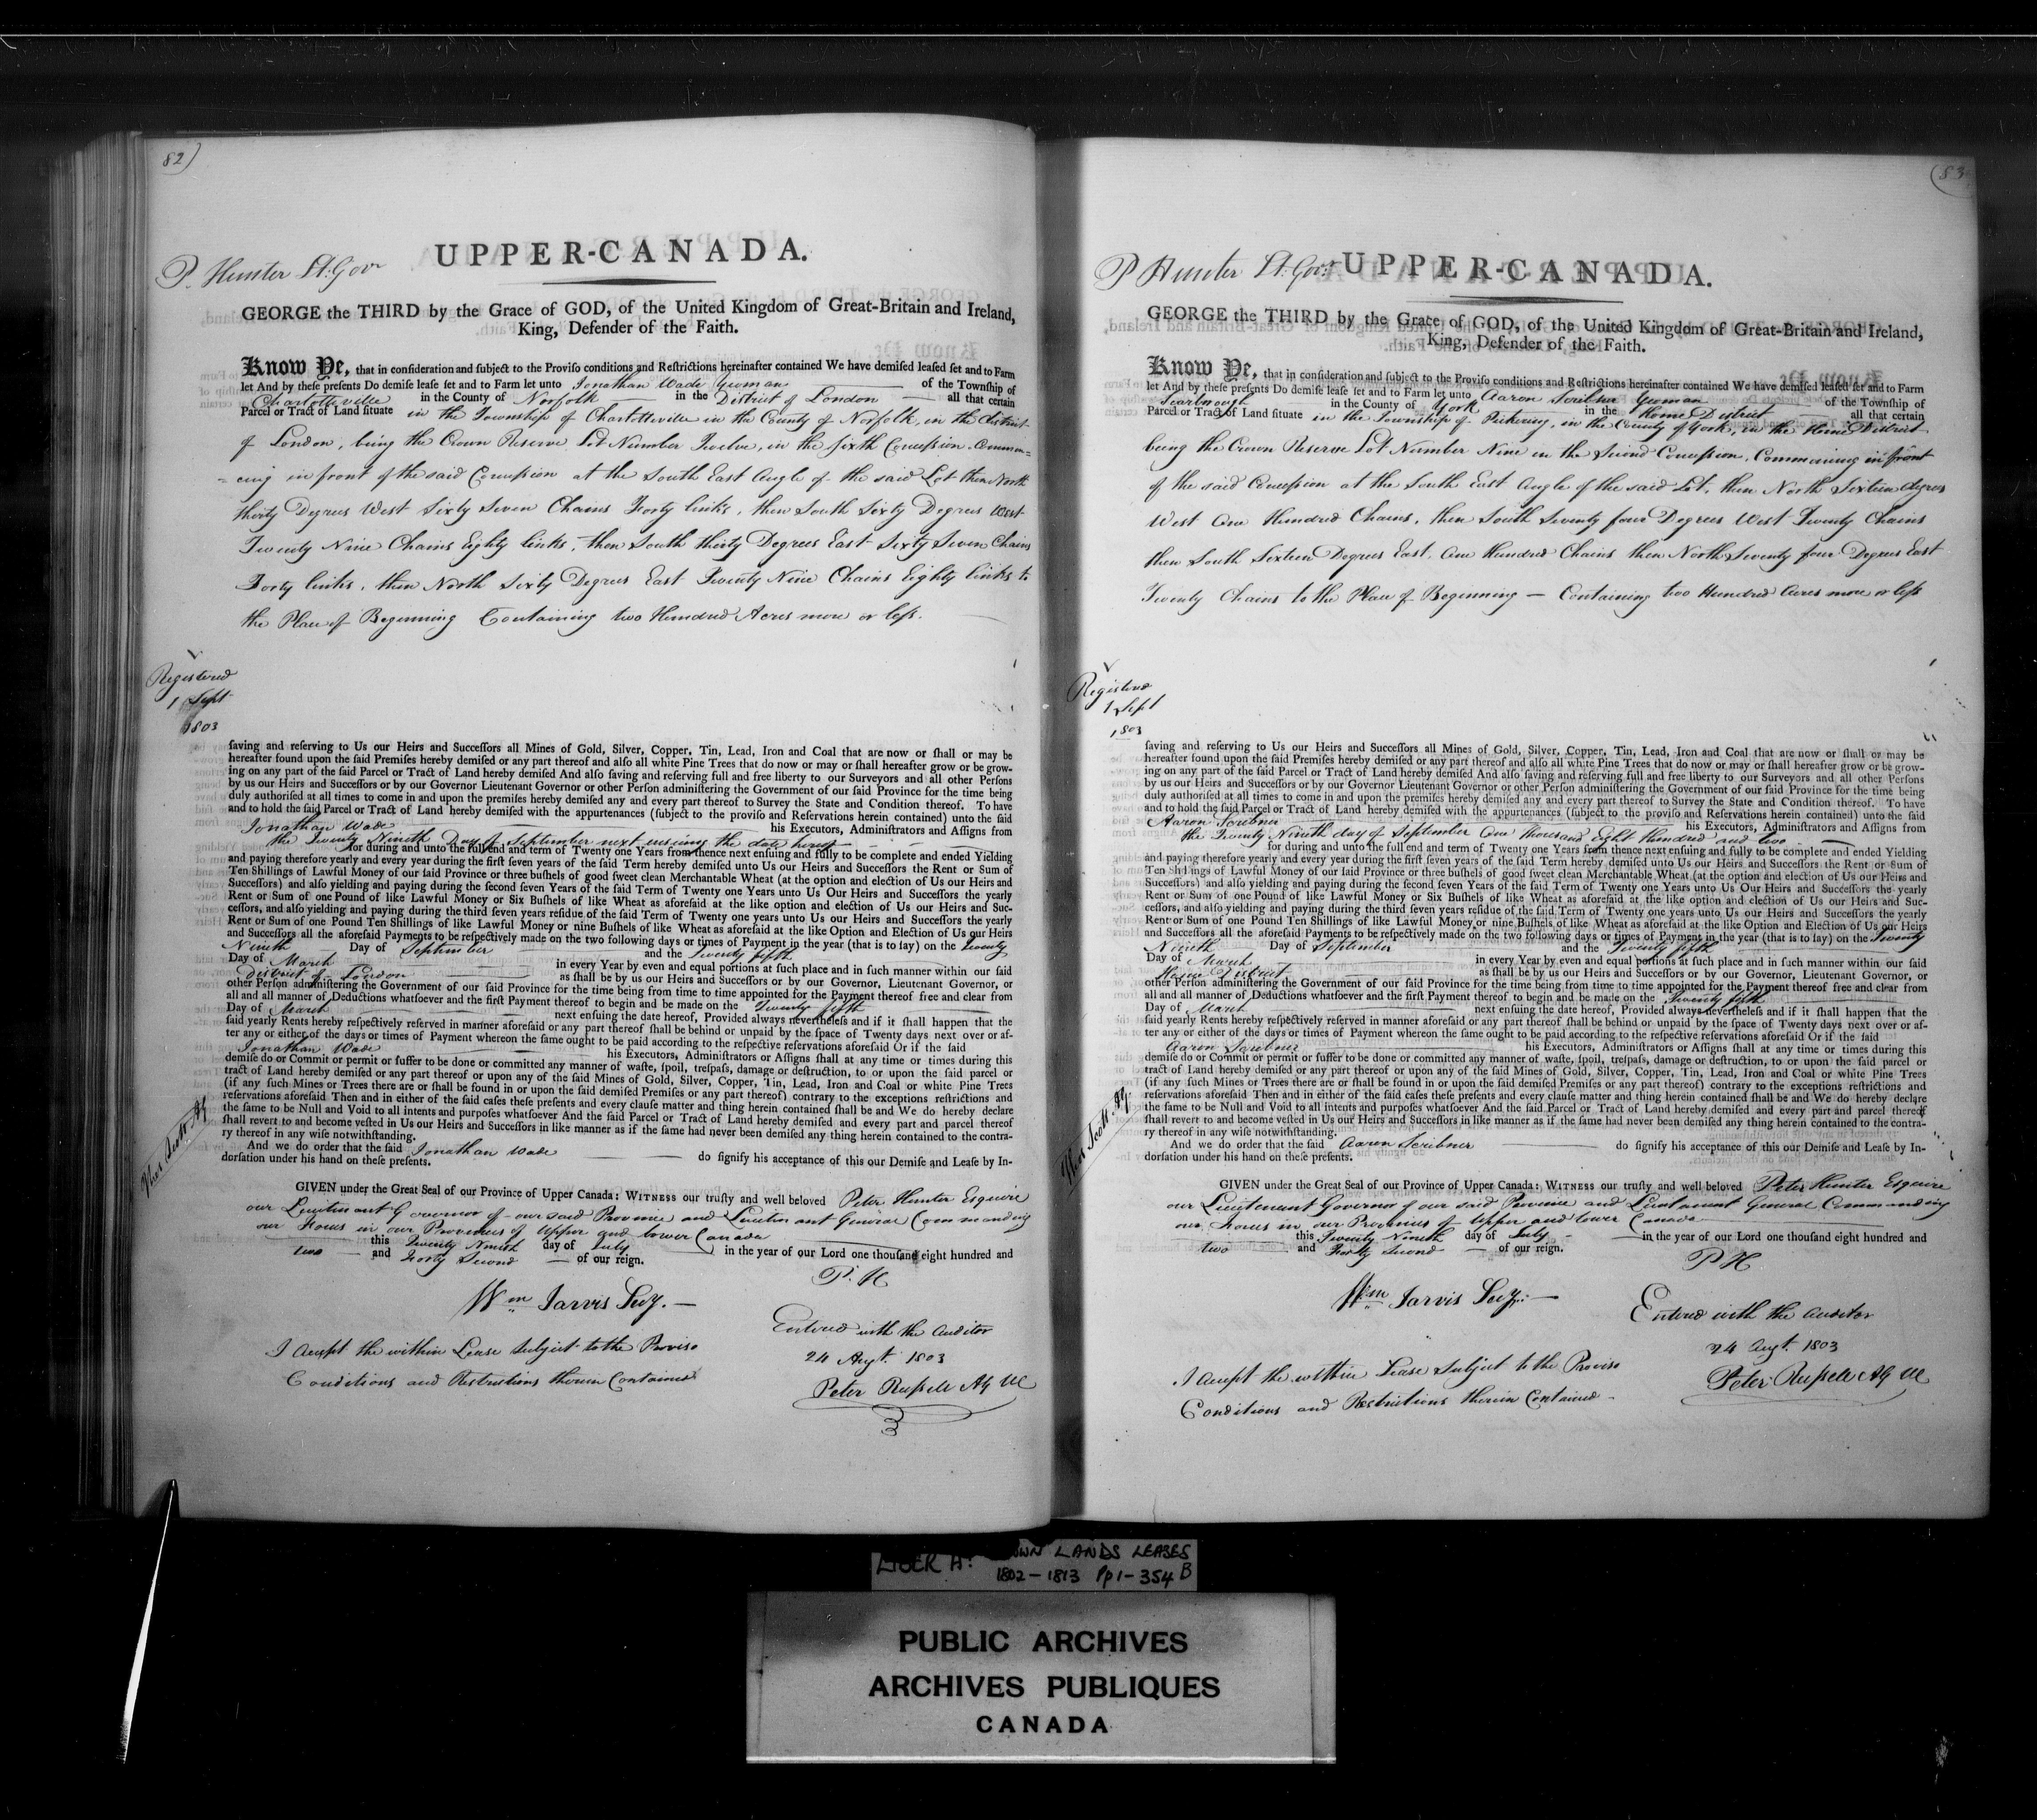 82)
UPPER-CANADA.
P. Hunter Lt. Govr
GEORGE the THIRD by the Grace of GOD, of the United Kingdom of Great-Britain and Ireland,
King, Defender of the Faith.
Know Ye, that in conſideration and ſubject to the Proviſo conditions and Reſtrictions hereinafter contained We have demiſed leaſed ſet and to Farm
let And by theſe preſents Do demiſe leaſe ſet and to Farm let unto Jonathan Wade Yeoman of the Townſhip of
Charlotteville in the County of Norfolk in the District of London all that certain
Parcel or Tract of Land ſituate in the Township of Charlotteville in the County of Norfolk, in the district
of London, being the Crown Reserve Lot Number Twelve, in the sixth Concession. Commen=
=cing in front of the said Concession at the South East Angle of the said Lot then North
thirty Degrees West Sixty Seven Chains Forty links, then South Sixty Degrees West
Twenty Nine Chains Eighty links, then South thirty Degrees East Sixty Seven Chains
Forty links, then North Sixty Degrees East Twenty Nine Chains Eighty links to
the Place of Beginning Containing two Hundred Acres more or less.
Registered
1 Sept
1803
ſaving and reſerving to Us our Heirs and Succeſſors all Mines of Gold, Silver, Copper, Tin, Lead, Iron and Coal that are now or ſhall or may be
hereafter found upon the ſaid Premiſes hereby demiſed or any part thereof and alſo all white Pine Trees that do now or may or ſhall hereafter grow or be grow-
ing on any part of the ſaid Parcel or Tract of Land hereby demiſed And alſo ſaving and reſerving full and free liberty to our Surveyors and all other Perſons
by us our Heirs and Succeſſors or by our Governor Lieutenant Governor or other Perſon adminiſtering the Government of our ſaid Province for the time being
duly authoriſed at all times to come in and upon the premiſes hereby demiſed any and every part thereof to Survey the State and Condition thereof. To have
and to hold the ſaid Parcel or Tract of Land hereby demiſed with the appurtenances (ſubject to the proviſo and Reſervations herein contained) unto the ſaid
Jonathan Wade his Executors, Adminiſtrators and Aſſigns from
the Twenty Nineth Day of September next ensuing the date hereof
for during and unto the full end and term of Twenty One Years from thence next enſuing and fully to be complete and ended Yielding
and paying therefore yearly and every year during the firſt ſeven years of the ſaid Term hereby demiſed unto Us our Heirs and Succeſſors the Rent or Sum of
Ten Shillings of Lawful Money of our ſaid Province or three buſhels of good ſweet clean Merchantable Wheat (at the option and election of Us our Heirs and
Succeſſors) and alſo yielding and paying during the ſecond ſeven Years of the ſaid Term of Twenty one Years unto Us Our Heirs and Succeſſors the yearly
Rent or Sum of one Pound of like Lawful Money or Six Buſhels of like Wheat as aforeſaid at the like option and election of Us our Heirs and Suc-
ceſſors, and alſo yielding and paying during the third ſeven years reſidue of the ſaid Term of Twenty one years unto Us our Heirs and Succeſſors the yearly
Rent or Sum of one Pound Ten Shillings of like Lawful Money or nine Buſhels of like Wheat as aforeſaid at the like Option and Election of Us our Heirs
and Succeſſors all the aforeſaid Payments to be reſpectively made on the two following days or times of Payment in the year (that is to ſay) on the Twenty
Nineth Day of September and the Twenty fifth
Day of March in every Year by even and equal portions at ſuch place and in ſuch manner within our ſaid
District of London as ſhall be by us our Heirs and Succeſſors or by our Governor, Lieutenant Governor, or
other Perſon adminiſtering the Government of our ſaid Province for the time being from time to time appointed for the Payment thereof free and clear from
all and all manner of Deductions whatſoever and the firſt Payment thereof to begin and be made on the Twenty fifth
Day of March next enſuing the date hereof, Provided always nevertheleſs and if it ſhall happen that the
ſaid yearly Rents hereby reſpectively reſerved in manner aforeſaid or any part thereof ſhall be behind or unpaid by the ſpace of Twenty days next over or af-
ter any or either of the days or times of Payment whereon the ſame ought to be paid according to the reſpective reſervations aforeſaid Or if the ſaid
Jonathan Wade his Executors, Adminiſtrators or Aſſigns ſhall at any time or times during this
demiſe do or Commit or permit or ſuffer to be done or committed any manner of waſte, ſpoil, treſpaſs, damage or deſtruction, to or upon the ſaid parcel or
tract of Land hereby demiſed or any part thereof or upon any of the ſaid Mines of Gold, Silver, Copper, Tin, Lead, Iron and Coal or white Pine Trees
(if any ſuch Mines or Trees there are or ſhall be found in or upon the ſaid demiſed Premiſes or any part thereof) contrary to the exceptions reſtrictions and
reſervations aforeſaid Then and in either of the ſaid caſes theſe preſents and every clauſe matter and thing herein contained ſhall be and We do hereby declare
the ſame to be Null and Void to all intents and purpoſes whatſoever And the ſaid Parcel or Tract of Land hereby demiſed and every part and parcel thereof
ſhall revert to and become veſted in Us our Heirs and Succeſſors in like manner as if the ſame had never been demiſed any thing herein contained to the contra-
ry thereof in any wiſe notwithſtanding.
And we do order that the ſaid Jonathan Wade do ſignify his acceptance of this our Demiſe and Leaſe by In-
dorſation under his hand on theſe preſents.
Thos Scott AG
GIVEN under the Great Seal of our Province of Upper Canada: WITNESS our truſty and well beloved Peter Hunter Esquire
our Lieutenant Governor of our said Province and Lieutenant General Commanding
our Forces in our Provinces of Upper and lower Canada
this Twenty Nineth day of July in the year of our Lord one thouſand eight hundred and
two and Forty Second of our reign.
P. H
Wm Jarvis Secy.
Entered with the Auditor
24 Augt. 1803
Peter Russell AG UC
I accept the within Lease subject to the Proviso
Conditions and Restrictions therein Contained
(83
P Hunter Lt. Govr UPPER-CANADA.
GEORGE the THIRD by the Grace of GOD, of the United Kingdom of Great-Britain and Ireland,
King, Defender of the Faith.
Know Ye, that in conſideration and ſubject to the Proviſo conditions and Reſtrictions hereinafter contained We have demiſed leaſed ſet and to Farm
let And by theſe preſents Do demiſe leaſe ſet and to Farm let unto Aaron Scribner Yeoman of the Townſhip of
Scarborough in the County of York in the Home District all that certain
Parcel or Tract of Land ſituate in the Township of Pickering, in the County of York, in the Home District
being the Crown Reserve Lot Number Nine in the Second Concession. Commencing in front
of the said Concession at the South East Angle of the said Lot, then North Sixteen degrees
West One Hundred Chains, then South Seventy four Degrees West Twenty Chains
then South Sixteen Degrees East, One Hundred Chains then North Seventy four Degrees East
Twenty Chains to the Place of Beginning — Containing two Hundred Acres more or less
Registered
1 Sept
1803
ſaving and reſerving to Us our Heirs and Succeſſors all Mines of Gold, Silver, Copper, Tin, Lead, Iron and Coal that are now or ſhall or may be
hereafter found upon the ſaid Premiſes hereby demiſed or any part thereof and alſo all white Pine Trees that do now or may or ſhall hereafter grow or be grow-
ing on any part of the ſaid Parcel or Tract of Land hereby demiſed And alſo ſaving and reſerving full and free liberty to our Surveyors and all other Perſons
by us our Heirs and Succeſſors or by our Governor Lieutenant Governor or other Perſon adminiſtering the Government of our ſaid Province for the time being
duly authoriſed at all times to come in and upon the premiſes hereby demiſed any and every part thereof to Survey the State and Condition thereof. To have
and to hold the ſaid Parcel or Tract of Land hereby demiſed with the appurtenances (ſubject to the proviſo and Reſervations herein contained) unto the ſaid
Aaron Scribner his Executors, Adminiſtrators and Aſſigns from
the Twenty Nineth day of September One thousand eight Hundred and two
for during and unto the full end and term of Twenty One Years from thence next enſuing and fully to be complete and ended Yielding
and paying therefore yearly and every year during the firſt ſeven years of the ſaid Term hereby demiſed unto Us our Heirs and Succeſſors the Rent or Sum of
Ten Shillings of Lawful Money of our ſaid Province or three buſhels of good ſweet clean Merchantable Wheat (at the option and election of Us our Heirs and
Succeſſors) and alſo yielding and paying during the ſecond ſeven Years of the ſaid Term of Twenty one Years unto Us Our Heirs and Succeſſors the yearly
Rent or Sum of one Pound of like Lawful Money or Six Buſhels of like Wheat as aforeſaid at the like option and election of Us our Heirs and Suc-
ceſſors, and alſo yielding and paying during the third ſeven years reſidue of the ſaid Term of Twenty one years unto Us our Heirs and Succeſſors the yearly
Rent or Sum of one Pound Ten Shillings of like Lawful Money or nine Buſhels of like Wheat as aforeſaid at the like Option and Election of Us our Heirs
and Succeſſors all the aforeſaid Payments to be reſpectively made on the two following days or times of Payment in the year (that is to ſay) on the Twenty
Nineth Day of September and the Twenty fifth
Day of March in every Year by even and equal portions at ſuch place and in ſuch manner within our ſaid
Home District as ſhall be by us our Heirs and Succeſſors or by our Governor, Lieutenant Governor, or
other Perſon adminiſtering the Government of our ſaid Province for the time being from time to time appointed for the Payment thereof free and clear from
all and all manner of Deductions whatſoever and the firſt Payment thereof to begin and be made on the Twenty fifth
Day of March next enſuing the date hereof, Provided always nevertheleſs and if it ſhall happen that the
ſaid yearly Rents hereby reſpectively reſerved in manner aforeſaid or any part thereof ſhall be behind or unpaid by the ſpace of Twenty days next over or af-
ter any or either of the days or times of Payment whereon the ſame ought to be paid according to the reſpective reſervations aforeſaid Or if the ſaid
Aaron Scribner his Executors, Adminiſtrators or Aſſigns ſhall at any time or times during this
demiſe do or Commit or permit or ſuffer to be done or committed any manner of waſte, ſpoil, treſpaſs, damage or deſtruction, to or upon the ſaid parcel or
tract of Land hereby demiſed or any part thereof or upon any of the ſaid Mines of Gold, Silver, Copper, Tin, Lead, Iron and Coal or white Pine Trees
(if any ſuch Mines or Trees there are or ſhall be found in or upon the ſaid demiſed Premiſes or any part thereof) contrary to the exceptions reſtrictions and
reſervations aforeſaid Then and in either of the ſaid caſes theſe preſents and every clauſe matter and thing herein contained ſhall be and We do hereby declare
the ſame to be Null and Void to all intents and purpoſes whatſoever And the ſaid Parcel or Tract of Land hereby demiſed and every part and parcel thereof
ſhall revert to and become veſted in Us our Heirs and Succeſſors in like manner as if the ſame had never been demiſed any thing herein contained to the contra-
ry thereof in any wiſe notwithſtanding.
And we do order that the ſaid Aaron Scribner do ſignify his acceptance of this our Demiſe and Leaſe by In-
dorſation under his hand on theſe preſents.
Thos Scott. AG.
GIVEN under the Great Seal of our Province of Upper Canada: WITNESS our truſty and well beloved Peter Hunter Esquire
our Lieutenant Governor of our said Province and Lieutenant General Commanding
our Forces in our Provinces of Upper and lower Canada
this Twenty Nineth day of July in the year of our Lord one thouſand eight hundred and
two and Forty Second of our reign.
P H
Wm Jarvis Secy.
Entered with the Auditor
24 Augt. 1803
Peter Russell AG UC
I accept the within Lease subject to the Proviso
Conditions and Restrictions therein Contained
LIBER A: LANDS LEASES
1802-1813 Pp 1-354 B
PUBLIC ARCHIVES
ARCHIVES PUBLIQUES
CANADA